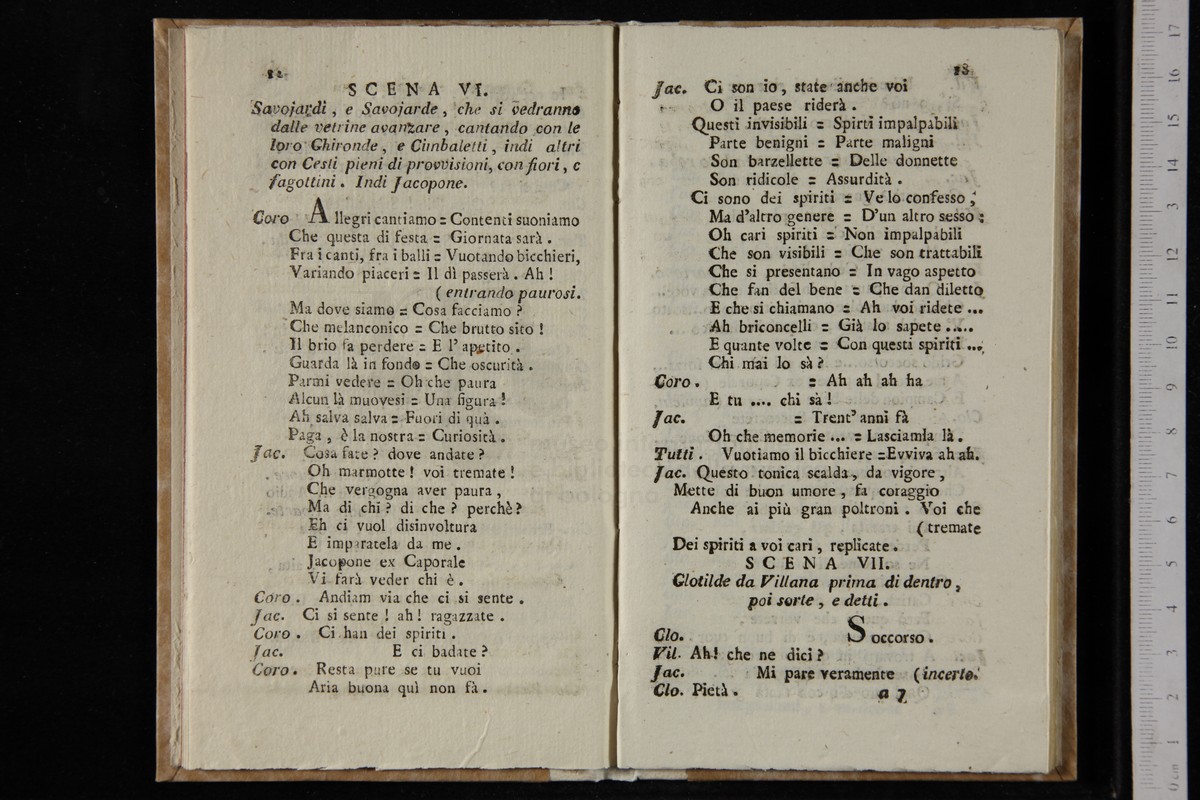 12
SCENA VI.
Savojardi, e Savojarde, che si vedranno
dalle vetrine avanzare, cantando con le
loro Ghironde, e Cimbaletti, indi altri
con Cesti pieni di provvisioni, con fiori, e
fagottini. Indi Jacopone.
Coro Allegri cantiamo = Contenti suoniamo
Che questa di festa = Giornata sarà.
Fra i canti, fra i balli = Vuotando bicchieri,
Variando piaceri = Il dì passerà. Ah!
( entrando paurosi.
Ma dove siamo = Cosa facciamo?
Che melanconico = Che brutto sito!
Il brio fa perdere = E l' apetito.
Guarda là in fondo = Che oscurità.
Parmi vedere = Oh che paura
Alcun là muovesi = Una figura!
Ah salva salva = Fuori di quà.
Paga, è la nostra = Curiosità.
Jac. Cosa fate? dove andate?
Oh marmotte! voi tremate!
Che vergogna aver paura,
Ma di chi? di che? perchè?
Eh ci vuol disinvoltura
E imparatela da me.
Jacopone ex Caporale
Vi farà veder chi è.
Coro. Andiam via che ci si sente.
Jac. Ci si sente! ah! ragazzate.
Coro. Ci han dei spiriti.
Jac. E ci badate?
Coro. Resta pure se tu vuoi
Aria buona quì non fà.
13
Jac. Ci son io, state anche voi
O il paese riderà.
Questi invisibili = Spirti impalpabili
Parte benigni = Parte maligni
Son barzellette = Delle donnette
Son ridicole = Assurdità.
Ci sono dei spiriti = Ve lo confesso;
Ma d'altro genere = D'un altro sesso;
Oh cari spiriti = Non impalpabili
Che son visibili = Che son trattabili
Che si presentano = In vago aspetto
Che fan del bene = Che dan diletto
E che si chiamano = Ah voi ridete ...
Ah briconcelli = Già lo sapete .....
E quante volte = Con questi spiriti ...
Chi mai lo sà?
Coro. = Ah ah ah ha
E tu .... chi sà!
Jac. = Trent' anni fà
Oh che memorie ... = Lasciamla là.
Tutti. Vuotiamo il bicchiere = Evviva ah ah.
Jac. Questo tonica scalda, da vigore,
Mette di buon umore, fa coraggio
Anche ai più gran poltroni. Voi che
( tremate
Dei spiriti a voi cari, replicate.
SCENA VII.
Clotilde da Villana prima di dentro,
poi sorte, e detti.
Clo. Soccorso.
Vil. Ah! che ne dici?
Jac. Mi pare veramente (incerto.
Clo. Pietà.
a 7
0 cm 1 2 3 4 5 6 7 8 9 10 11 12 13 14 15 16 17